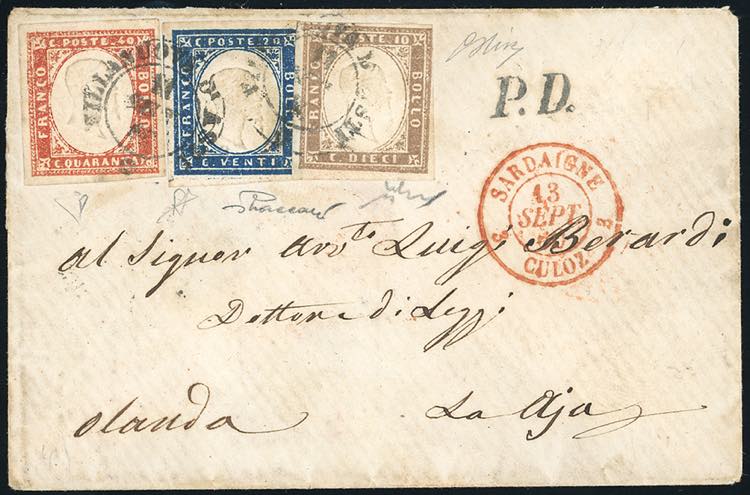 C. POSTE 40
FRANCO
BOLLO
C. QUARANTA
C. POSTE 20
FRANCO
BOLLO
C. VENTI
C. POSTE 10
FRANCO
BOLLO
C. DIECI
P.D.
SARDAIGNE
13
SEPT
CULOZ
Al Signor Avv.to Luigi Berardi
Dottore di Leggi
Olanda La Aja